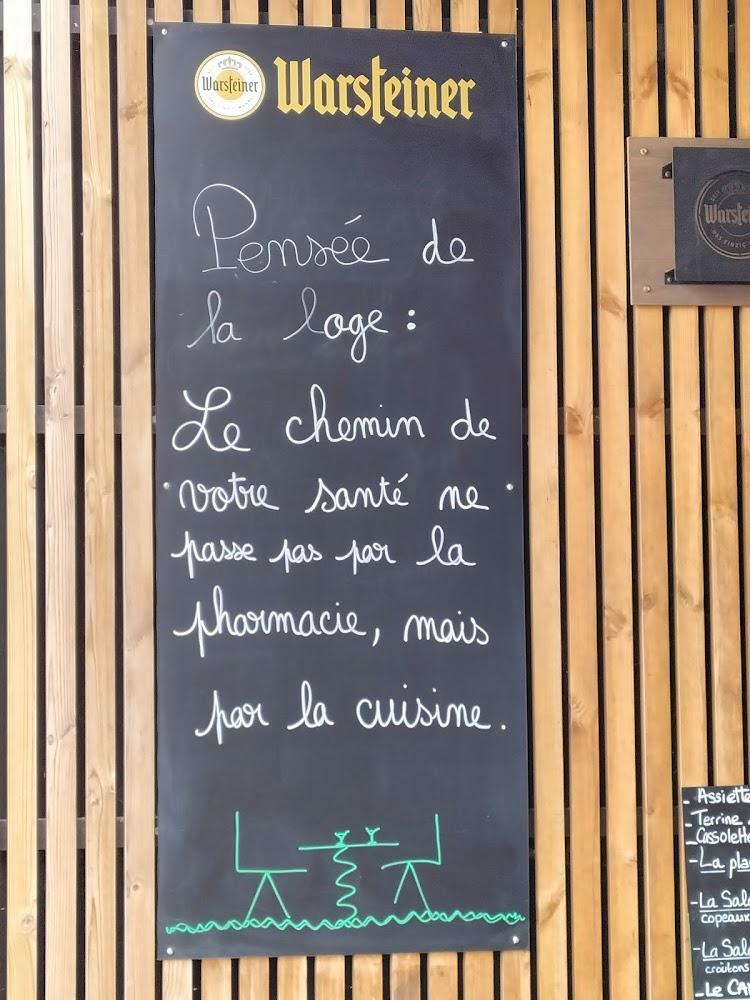 Warsteiner
Warsteiner
Pensée de
la loge :
Le chemin de
votre santé ne
passe pas par la
pharmacie, mais
par la cuisine.
- Assiette
- Terrine
- Cassolette
- La
- La
copeaux
- La
croûtons
- Le